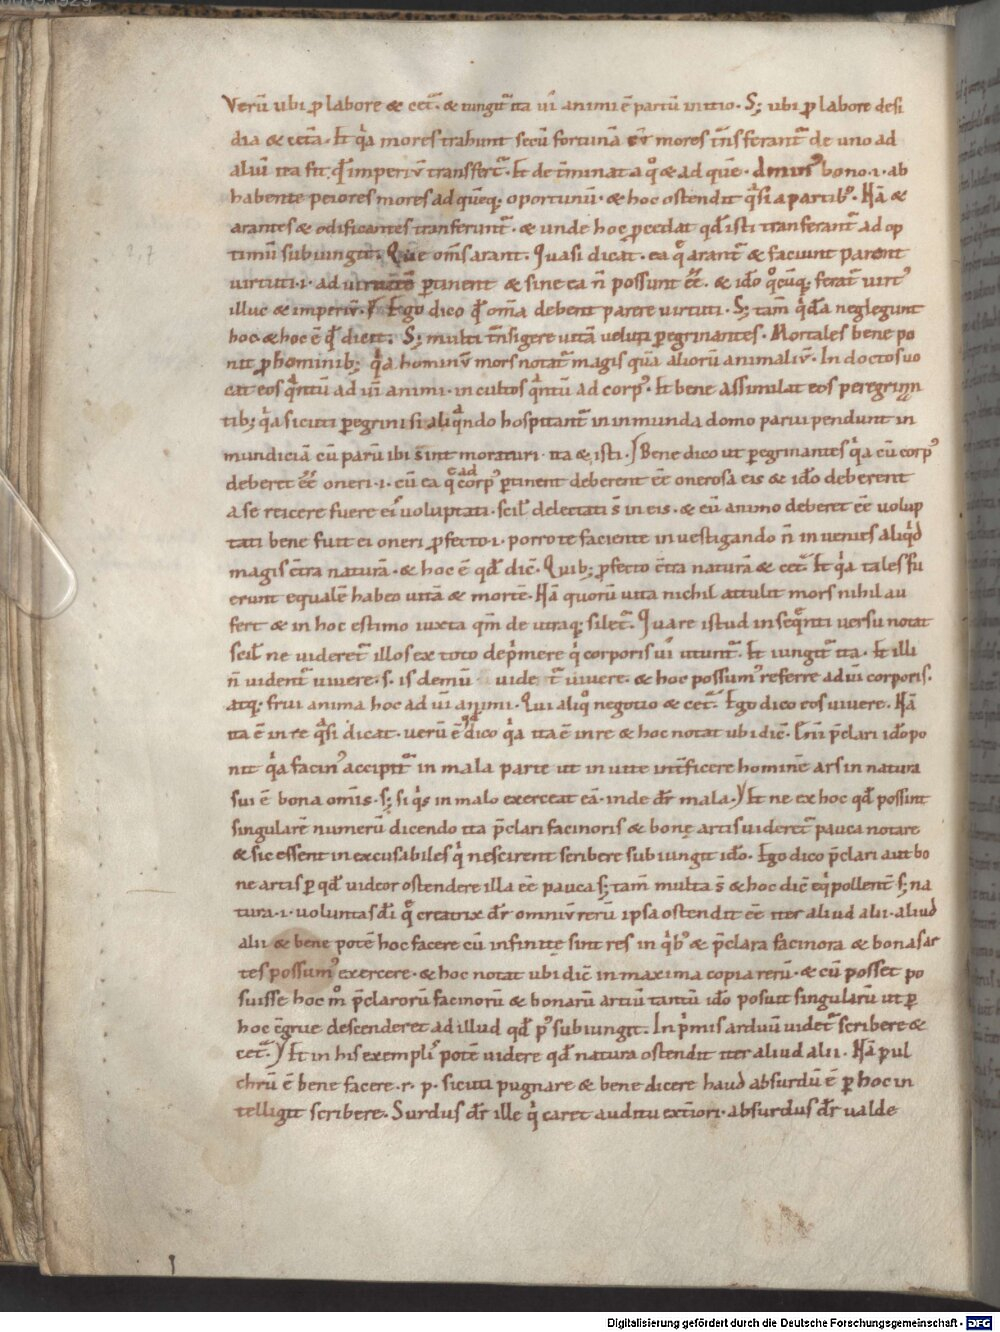 Verū ubi ꝓ labore & cet̄. & iungit̄ ita uī animi ē partū initio. S; ubi ꝓ labore desi
dia & cet̄a. Et q̇a mores trahunt secū fortunā cū mores t̄nsferant̄ de uno ad
aliū ita fit qd̄ imperiū transfert̄. Et det̄minat a qͦ & ad quē. bono .i. ab
habente peiores mores ad quēq; oportunū. & hoc ostendit q̄si a partibꝰ. Nā &
arantes & edificantes transferunt̄. & unde hoc ꝓcedat qd̄ isti transferant̄ ad op
timū subiungit. Que om̄s arant. Quasi dicat. ea q̄ arant̄ & faciunt parent
uirtuti .i. ad uirtutē ꝑtinent & sine ea n̄ possunt eē̄. & ido qͦcūq; ferat̄ uirtꝰ
illuc & imperiū. Ego dico qd̄ om̄a debent parere uirtuti. S; tam̄ q̇da neglegunt
hoc & hoc ē qd̄ dicit. S; multi t̄nsigere uitā uelut ꝑegrinantes. Mortales bene po
nit ꝓ hominib; q̇a hominū mors notat̄ magis quā aliorū animaliū. Indoctos uo
cat eos q̄ntū ad uī animi. incultos q̄ntū ad corpꝰ. Et bene assimilat eos peregrinn
tib; q̇a sicuti ꝑegrini si aliq̄ndo hospitant̄ in inmunda domo parui pendunt in
mundiciā cū parū ibi sint moraturi. ita & isti. Bene dico ut ꝑegrinantes q̇a cū corpꝰ
deberet eē̄ oneri .i. cū ea q̄ ad corpꝰ ꝑtinent deberent eē onerosa eis & ido deberent
a se reicere fuere ei uoluptati. scil̄ delectati s̄ in eis. & cū animo deberet eē uolup
tati bene fuit ei oneri ꝓfecto .i. porro te faciente inuestigando n̄ inuenies aliqͥd
magis c̄tra naturā. & hoc ē qd̄ dic̄. Quib; ꝓfecto c̄tra naturā & cet̄. Et q̇a tales fu
erunt equalē habeo uitā & mortē. Nā quorū uita nichil attulit mors nihil au
fert & in hoc estimo iuxta qm̄ de utraq; silet̄. Quare istud in seq̄nti uersu notat
scil̄ ne uideret̄ illos ex toto dep̄mere q̇ corporis uī utunt̄. Et iungit̄ ita. Et illi
n̄ uident̄ uiuere. s. is demū uide t̄ uiuere. & hoc possumꝰ referre ad uī corporis.
atq; frui anima hoc ad uī animi. Qui aliqͦ negotio & cet̄. Ego dico eos uiuere. Nā
ita ē in re q̄si dicat. uerū ē qd̄ dico q̇a ita ē in re & hoc notat ubi dic̄. p̄clari ido po
nit q̇a facinꝰ accipit̄ in mala parte ut in uite int̄ficere hominē ars in natura
sui ē bona omīs. s; si q̇s in malo exerceat eā. inde dr̄ mala. Et ne ex hoc qd̄ possint
singularē numerū dicendo ita p̄clari facinoris & bonę artis uideret̄ pauca notare
& sic essent inexcusabiles q̇ nescirent scribere subiungit ido. Ego dico p̄clari aut bo
ne artis ꝑ qd̄ uideor ostendere illa eē pauca s; tam̄ multa s̄ & hoc dic̄ eq̇pollent̄ s; na
tura .i. uoluntas dī q̄ creatrix dr̄ omniū rerū ipsa ostendit eē iter aliud alii. aliud
alii & bene potē hoc facere cū infinite sint res in q̇bꝰ & p̄clara facinora & bonas ar
tes possumꝰ exercere. & hoc notat ubi dic̄ in maxima copia rerū. & cū posset po
suisse hoc mͦ p̄clarorū facinorū & bonarū artiū tantū ido posuit singularū ut ꝑ
hoc c̄grue descenderet ad illud qd̄ pꝰ subiungit. In p̄mis arduū uidet̄ scribere &
cet̄. Et in his exemplꝭ potē uidere qd̄ natura ostendit iter aliud alii. Nā pul
chrū ē bene facere .r. p. sicuti pugnare & bene dicere haud absurdū ē ꝑ hoc in
telligit scribere. Surdus dr̄ ille q̇ caret auditu ext̄iori. absurdus dr̄ ualde
Digitalisierung gefördert durch die Deutsche Forschungsgemeinschaft - DFG